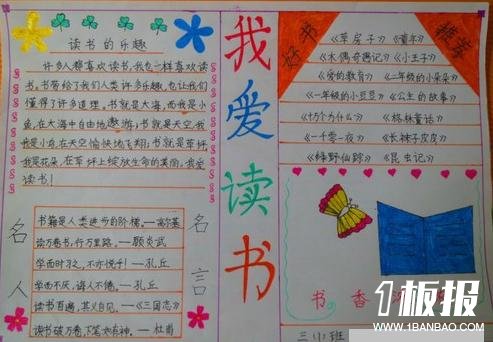 读书的乐趣
许多人都喜欢读书,我也一样喜欢读
书,书带给了我们人类许多乐趣,也让我们
懂得了许多道理。书就是大海,而我是小
鱼,在大海中自由地遨游;书就是天空,我
是小鸟,在天空愉快地飞翔;书就是草坪,
我是花朵,在草坪上绽放生命的美丽,我爱
读书!
名人
名言
书籍是人类进步的阶梯。——高尔基
读万卷书,行万里路。——顾炎武
学而时习之,不亦悦乎!——孔丘
学而不厌,诲人不倦。——孔丘
读书百遍,其义自见。——《三国志》
读书破万卷,下笔如有神。——杜甫
我爱读书
好书
推荐
《草房子》《童年》
《木偶奇遇记》《小王子》
《爱的教育》《二年级的小朵朵》
《一年级的小豆豆》《公主的故事》
《十万个为什么》《格林童话》
《一千零一夜》《长袜子皮皮》
《绿野仙踪》《昆虫记》
书香
三(1)班
1板报
WWW.1BANBAO.COM